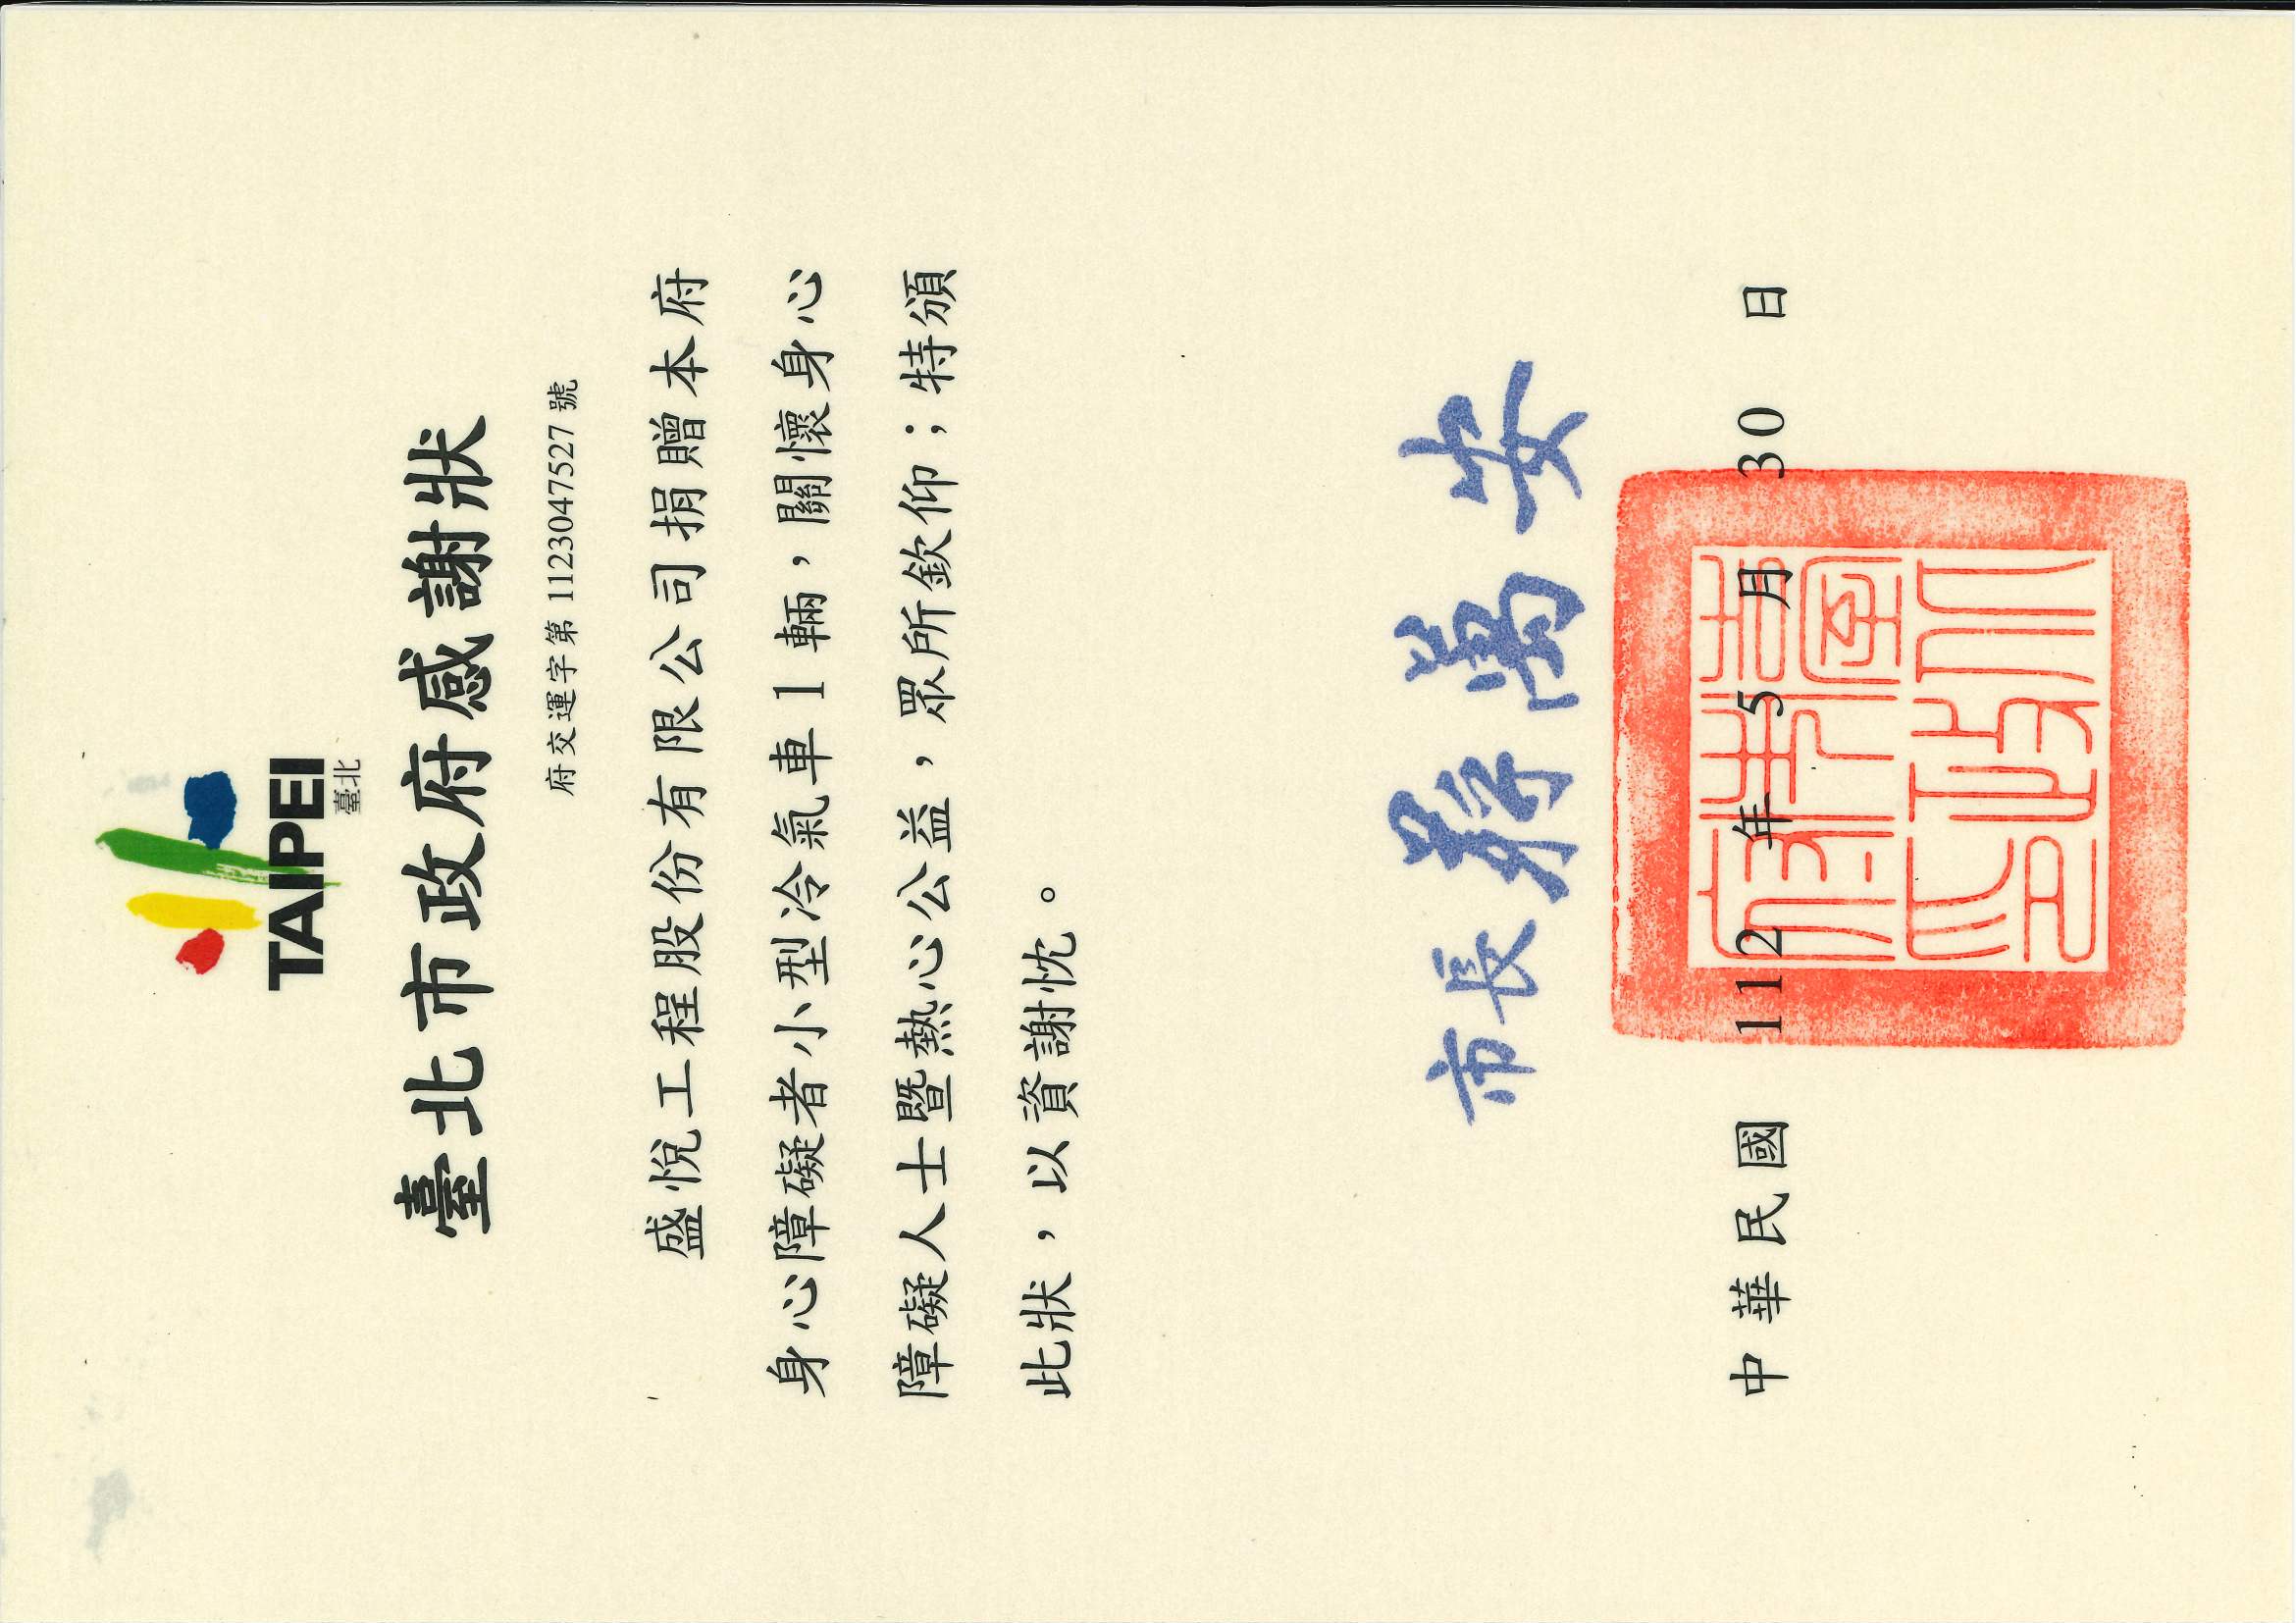 TAIPEI
臺北
臺北市政府感謝狀
府交運字第 1123047527 號
盛悅工程股份有限公司捐贈本府
身心障礙者小型冷氣車1輛，關懷身心
障礙人士暨熱心公益，眾所欽仰；特頒
此狀，以資謝忱。
市長 蔣萬安
中華民國 112 年 5 月 30 日